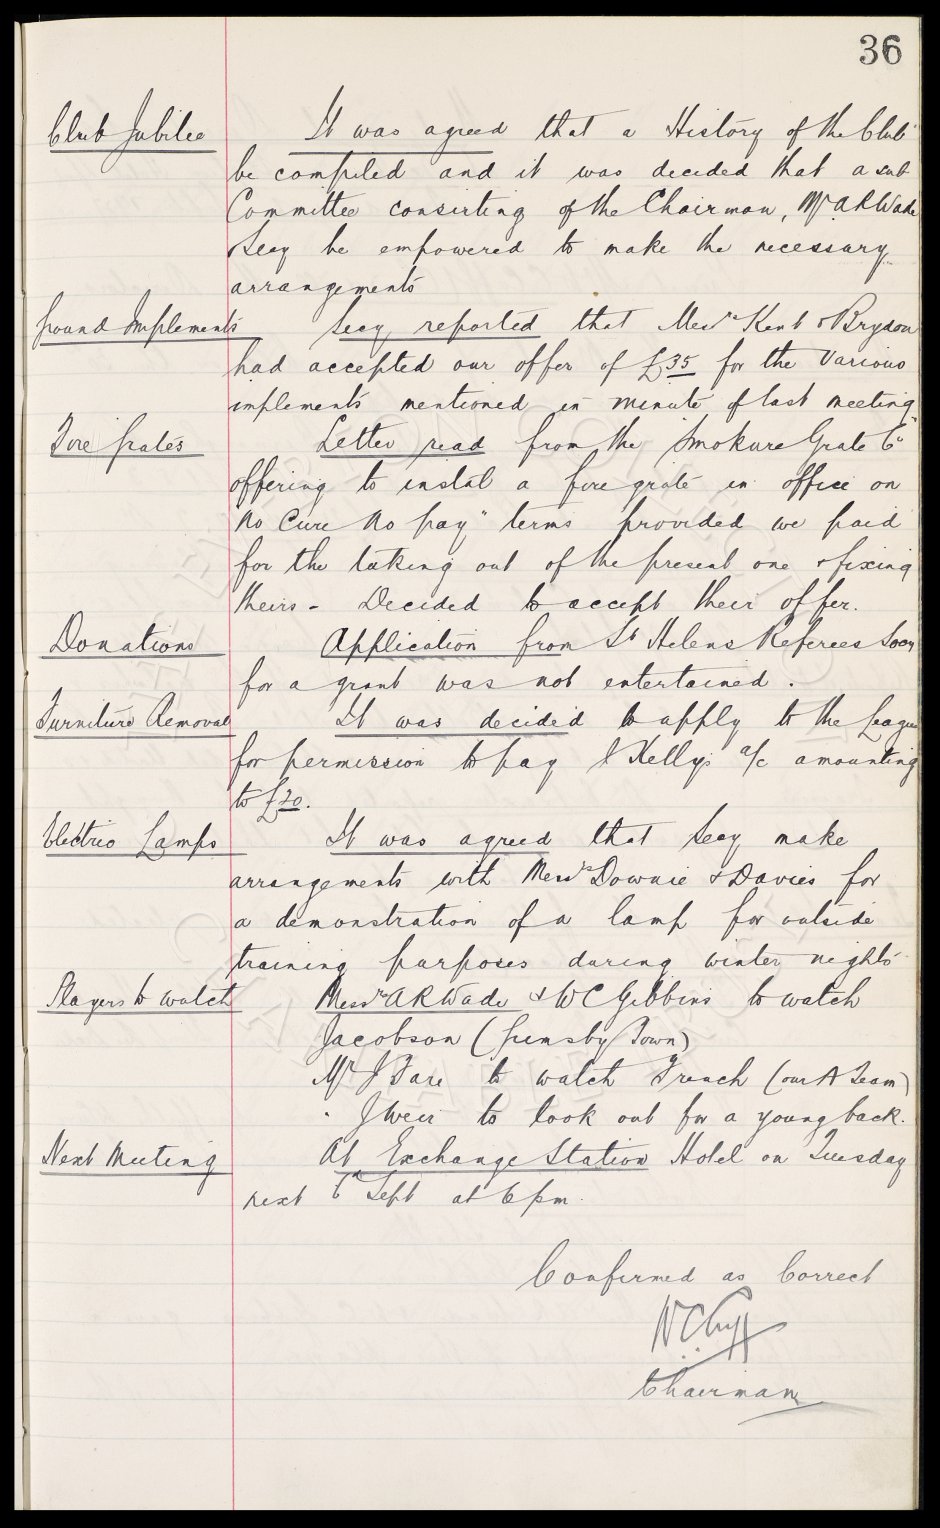 36
Club Jubilee It was agreed that a History of the Club
be compiled and it was decided that a sub
Committee consisting of the Chairman, Mr A R Wade
Secy be empowered to make the necessary
arrangements
Ground Implements Secy reported that Messrs Kent & Brydon
had accepted our offer of £35 for the various
implements mentioned in minute of last meeting
Fire Grates Letter read from the Smokure Grate Co
offering to instal a fire grate in office on
"No Cure No pay" terms provided we paid
for the taking out of the present one & fixing
theirs - Decided to accept their offer.
Donations Application from St Helens Referees Socy
for a grant was not entertained.
Furniture Removal It was decided to apply to the League
for permission to pay J Kelly's a/c amounting
to £20.
Electric Lamps It was agreed that Secy make
arrangements with Messrs Downie & Davies for
a demonstration of a lamp for outside
training purposes during winter nights
Players to watch Messrs A R Wade & W C Gibbins to watch
Jacobson (Grimsby Town)
Mr J Fare to watch French (our A Team)
" J Weir to look out for a young back.
Next Meeting At Exchange Station Hotel on Tuesday
next 6th Sept at 6 pm.
Confirmed as Correct
W C Cuff
Chairman